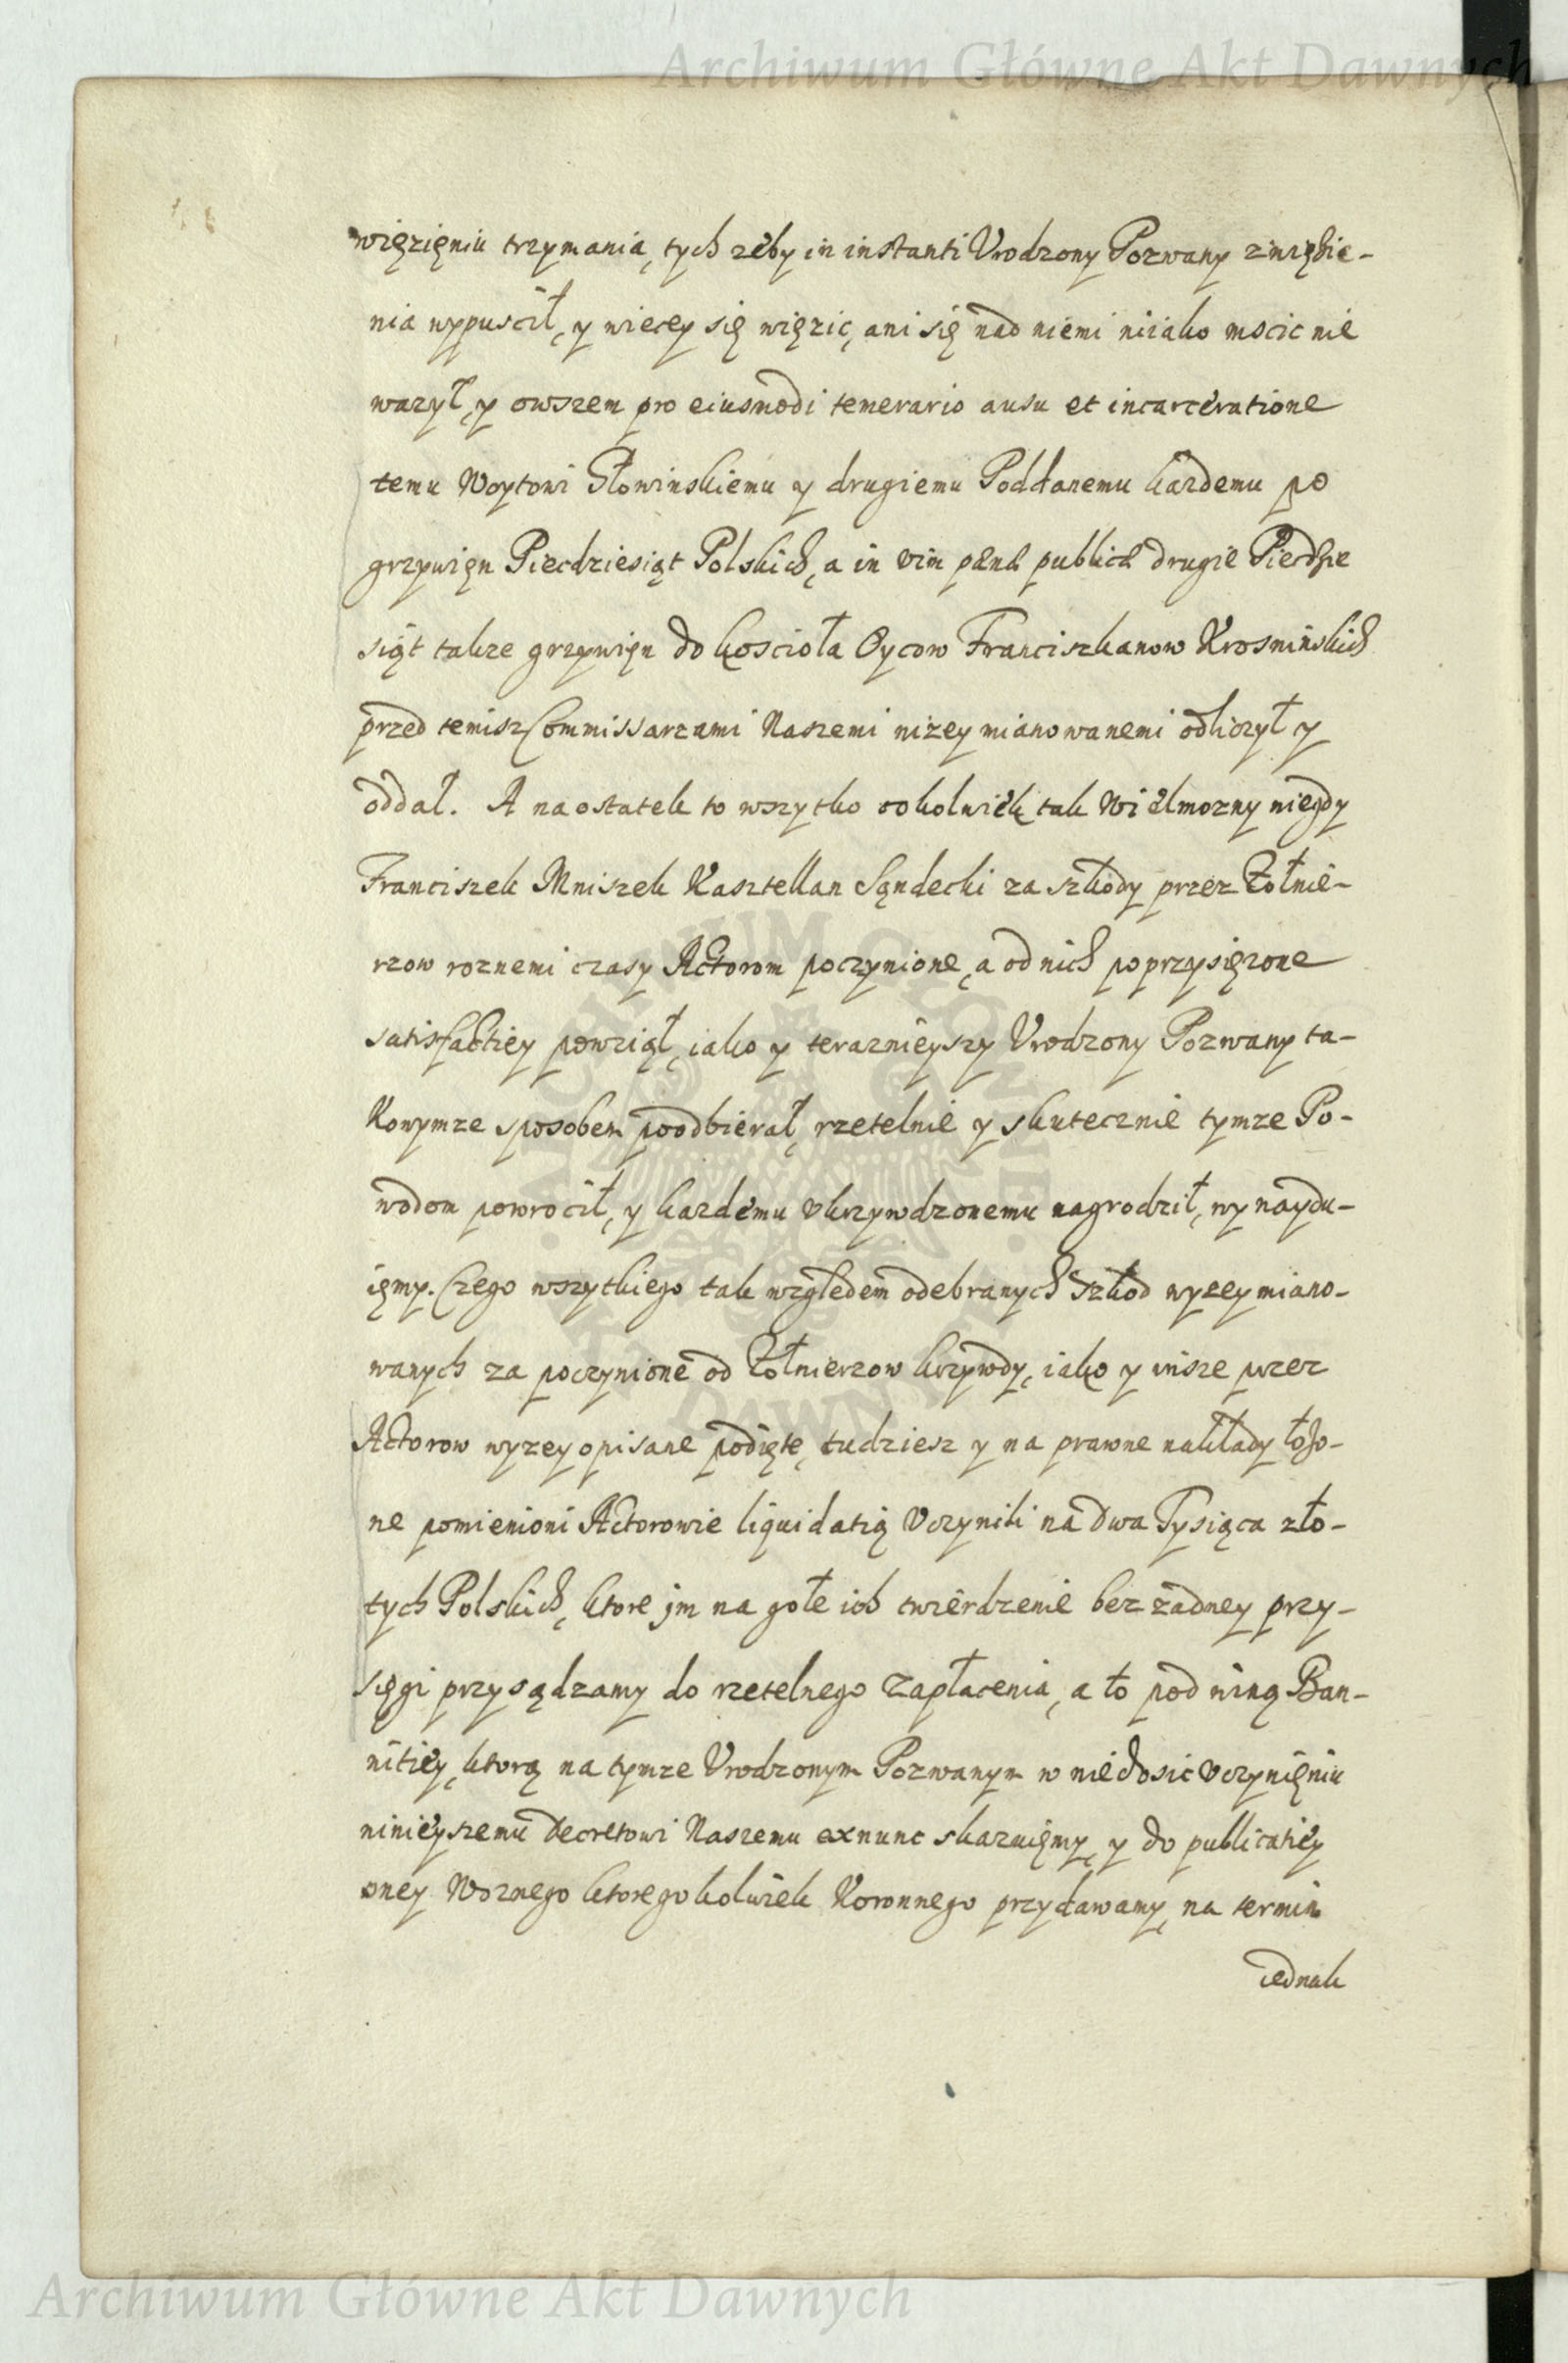 Archiwum Główne Akt Dawnych
więzięniu trzymania, tych zeby in instanti Vrodzony Pozwany z więzie-
nia wypuscił, y wiecey się więzic, ani się nad niemi niiako mscic nie
wazył, y owszem pro eiusmodi temerario ausu et incarceratione
temu Woytowi Głowinskiemu y drugiemu Poddanemu kazdemu po
grzywięn Piecdziesiąt Polskich, a in vim pænæ publicæ drugie Piecdzie
siąt takze grzywięn do koscioła Oycow Franciszkanow Krosninskich
przed temisz Commissarzami Naszemi nizey mianowanemi odliczył y
oddał. A na ostatek to wszytko cokolwiek tak Wielmozny niegdy
Franciszek Mniszek Kasztellan Sąndecki za szkody przez Zołnie-
rzow roznemi czasy Actorom poczynione, a od nich poprzysięzone
satisfactiey powziął, iako y terazniejszy Vrodzony Pozwany ta-
Konymze sposobem poodbierał, rzetelnie y skutecznie tymze Po-
wodom powrocił, y kazdemu vkrzywdzonemu nagrodził, wynaydu-
ięmy. Czego wszytkiego tak względem odebranych Szkod wyzey miano-
wanych za poczynione od Zołnierzow krzywdy, iako y insze przez
Actorow wyzey opisane podięte, tudziesz y na prawne nakłady łozo-
ne pomienioni Actorowie liquidatią Vczynili na dwa Tysiąca zło-
tych Polskich, ktore jm na gołe ich twierdzenie bez zadney przy-
sięgi przysądzamy do rzetelnego zapłacenia, a to pod winą Ban-
nitiey, ktorą na tymze Vrodzonym Pozwanym w niedosic vczynięniu
ninieyszemu Decretowi Naszemu exnunc skazuięmy, y do publicatiey
oney Woznego ktoregokolwiek Koronnego przydawamy, na termin
iednak
Archiwum Główne Akt Dawnych